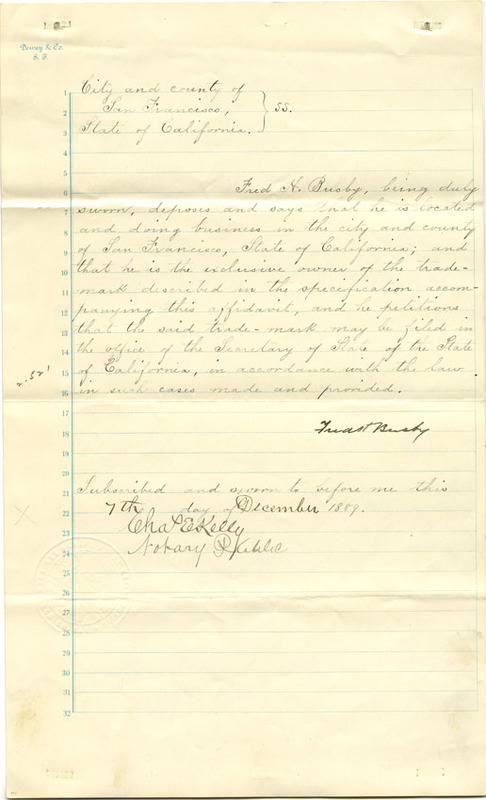 Dewey & Co.
S. F.
1 City and county of
2 San Francisco, } SS.
3 State of California.
4
5
6 Fred H. Busby, being duly
7 sworn, deposes and says that he is located
8 and doing business in the city and county
9 of San Francisco, State of California; and
10 that he is the exclusive owner of the trade-
11 mark described in the specification accom-
12 panying this affidavit, and he petitions
13 that the said trade-mark may be filed in
14 the office of the Secretary of State of the State
15 of California, in accordance with the law
16 in such cases made and provided.
17
18 Fred H Busby
19
20
21 Subscribed and sworn to before me this
22 7th day of December 1889.
23 Chas E Kelly
24 Notary Public
25
26
27
28
29
30
31
32